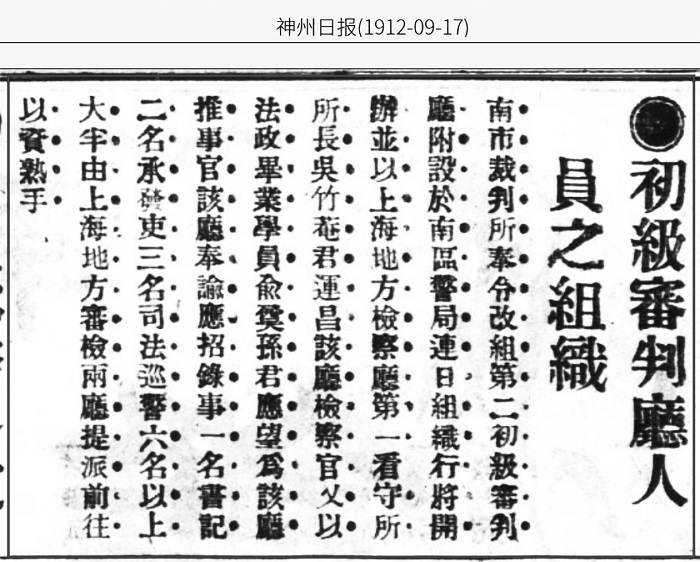 神州日报(1912-09-17)
●初級審判廳人
員之組織
南市裁判所奉令改組第二初級審判
廳附設於南區警局連日組織行將開
辦並以上海地方檢察廳第一看守所
所長吳竹菴君運昌該廳檢察官又以
法政畢業學員兪奠孫君應望爲該廳
推事官該廳奉諭應招錄事一名書記
二名承發吏三名司法巡警六名以上
大半由上海地方審檢兩廳提派前往
以資熟手